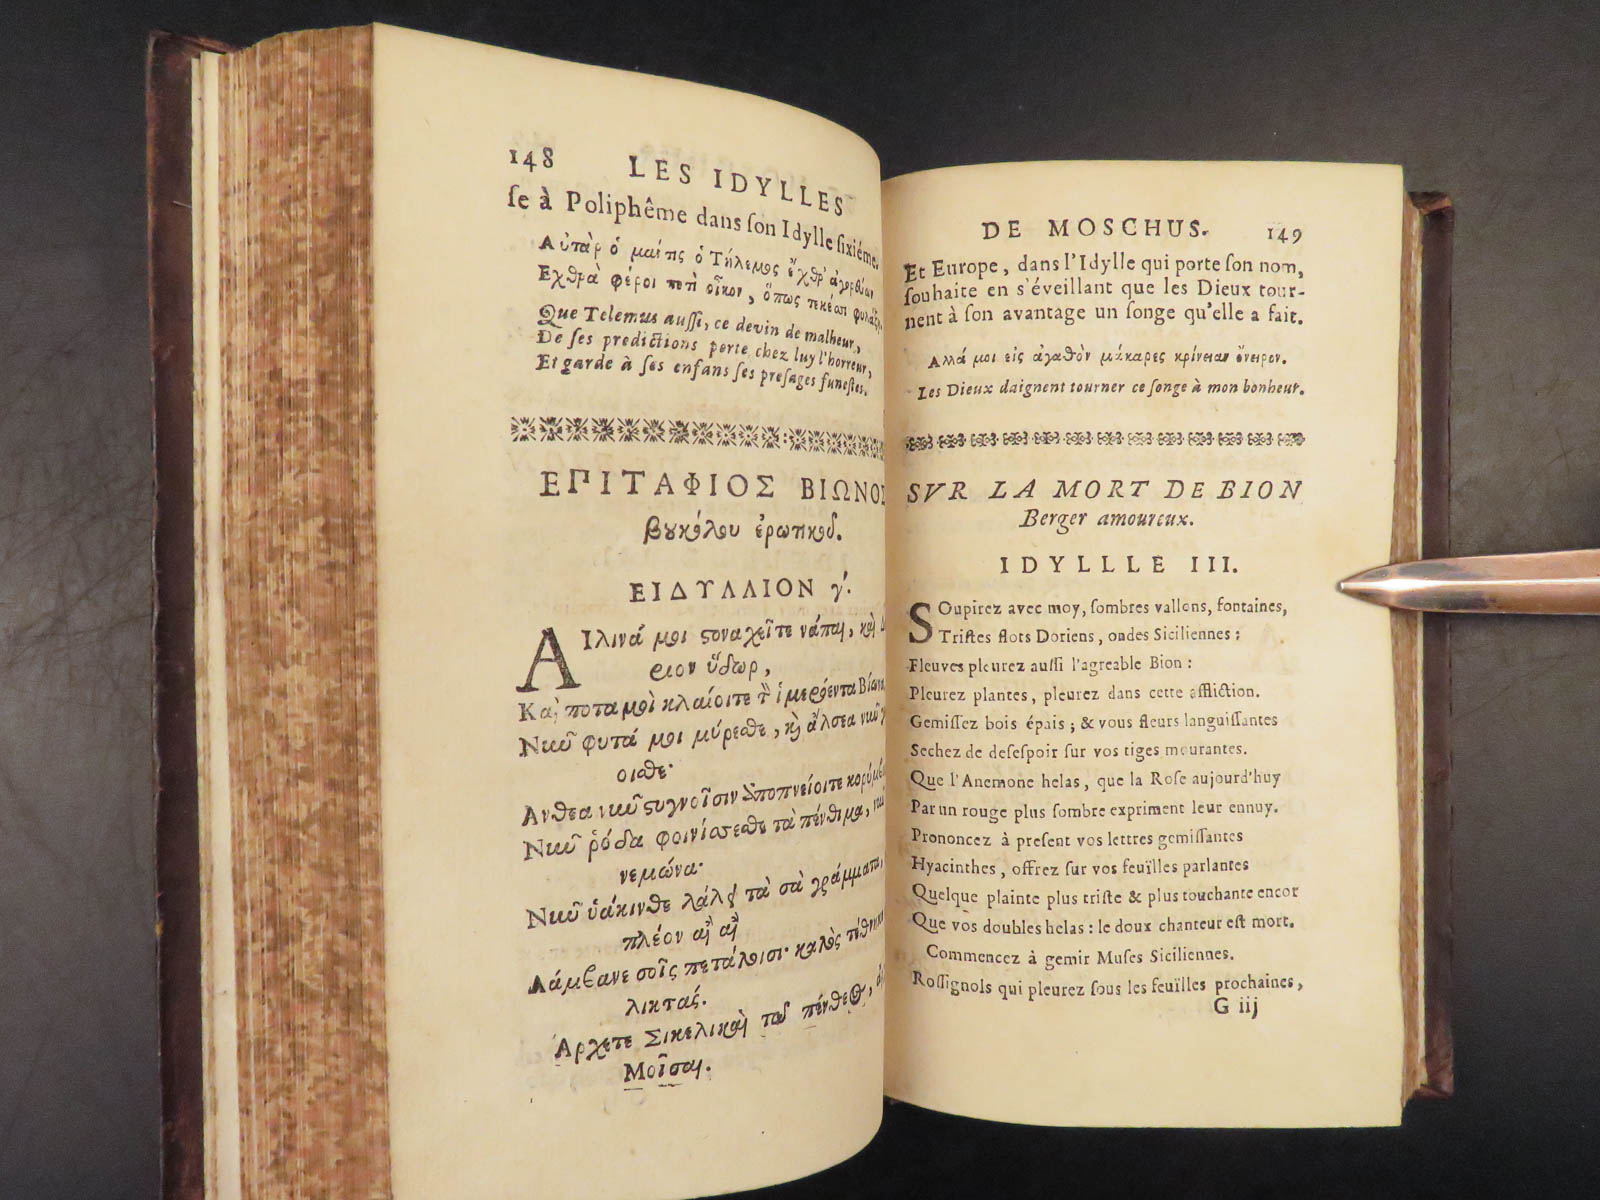 148 LES IDYLLES
ſe à Poliphême dans ſon Idylle ſixiéme.
Αὐτὰρ ὁ μαίτις ὁ Τήλεμος ἔχθρ' ἀγορεύων
Εχθρὰ φέροι ποτὶ οἶκον, ὅπως τεκέεσσι φυλάξῃ
Que Telemus auſſi, ce devin de malheur,
De ſes predictions porte chez luy l'horreur,
Et garde à ſes enfans ſes preſages funeſtes.
ΕΠΙΤΑΦΙΟΣ ΒΙΩΝΟΣ
βουκόλου ἐρωτικοῦ.
ΕΙΔΥΛΛΙΟΝ γ'.
ΑΙλινά μοι στοναχεῖτε νάπαι, καὶ
ριον ὕδωρ,
Καὶ ποταμοὶ κλαίοιτε τὸν ἱμερόεντα Βίωνα
Νῦν φυτά μοι μύρεσθε, καὶ ἄλσεα νῦν
οισθε·
Ανθεα νῦν στυγνοῖσιν ἀποπνείοιτε κορύμ
Νῦν ῥόδα φοινίσσεσθε τὰ πένθιμα, νῦν
νεμώνα·
Νῦν ὑάκινθε λάλει τὰ σὰ γράμματα,
πλέον αἲ αἲ
Λάμβανε σοῖς πετάλοισι· καλὸς τέθνηκε
λικτάς.
Αρχετε Σικελικαὶ τοῦ πένθεος,
Μοῖσαι.
DE MOSCHUS. 149
Et Europe, dans l'Idylle qui porte ſon nom,
ſouhaite en s'éveillant que les Dieux tour-
nent à ſon avantage un ſonge qu'elle a fait.
Αλλά μοι εἰς ἀγαθὸν μάκαρες κρίνειαν ὄνειρον.
Les Dieux daignent tourner ce ſonge à mon bonheur.
SVR LA MORT DE BION
Berger amoureux.
IDYLLLE III.
SOupirez avec moy, ſombres vallons, fontaines,
Triſtes flots Doriens, ondes Siciliennes:
Fleuves pleurez auſſi l'agreable Bion:
Pleurez plantes, pleurez dans cette affliction.
Gemiſſez bois épais; & vous fleurs languiſſantes
Sechez de deſeſpoir ſur vos tiges mourantes.
Que l'Anemone helas, que la Roſe aujourd'huy
Par un rouge plus ſombre expriment leur ennuy.
Prononcez à preſent vos lettres gemiſſantes
Hyacinthes, offrez ſur vos feuïlles parlantes
Quelque plainte plus triſte & plus touchante encor
Que vos doubles helas: le doux chanteur eſt mort.
Commencez à gemir Muſes Siciliennes.
Roſſignols qui pleurez ſous les feuïlles prochaines,
G iij